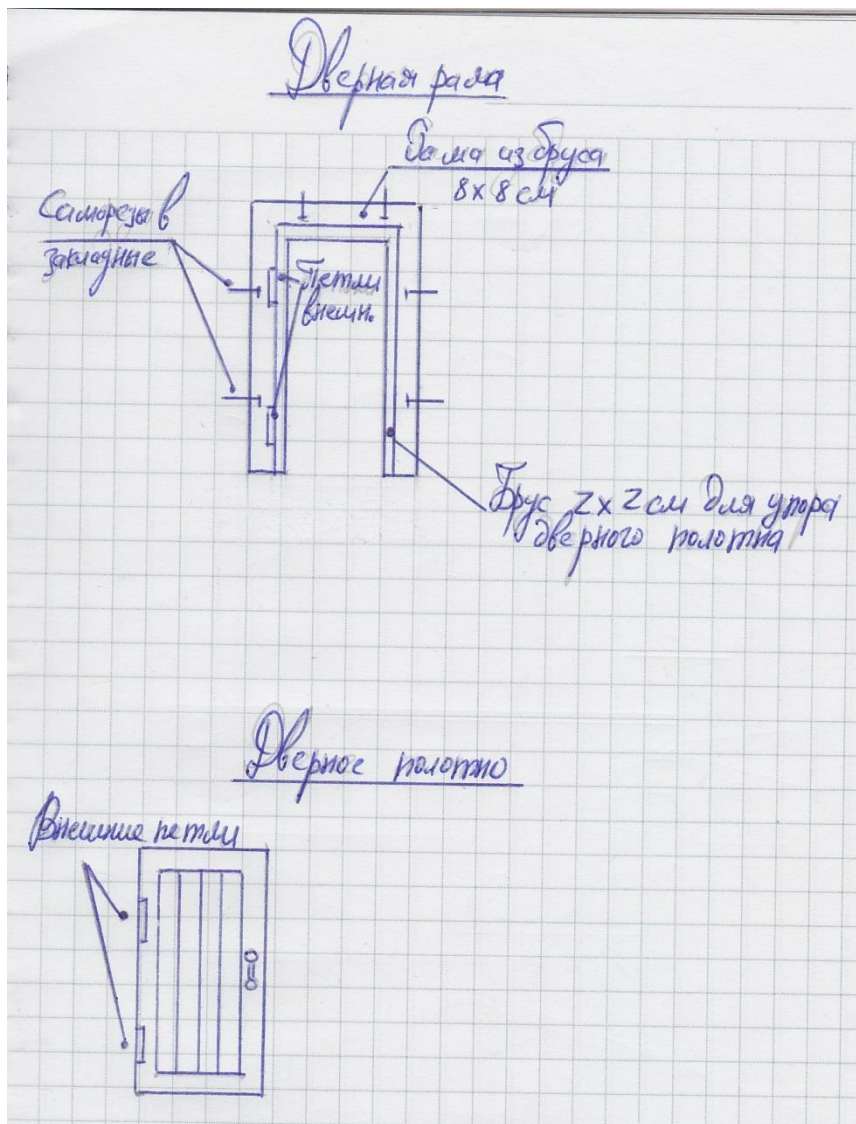 Дверная рама
Рама из бруса
8х8 см
Саморезы в
закладные
Петли
внешн.
Брус 2х2 см для упора
дверного полотна
Дверное полотно
Внешние петли